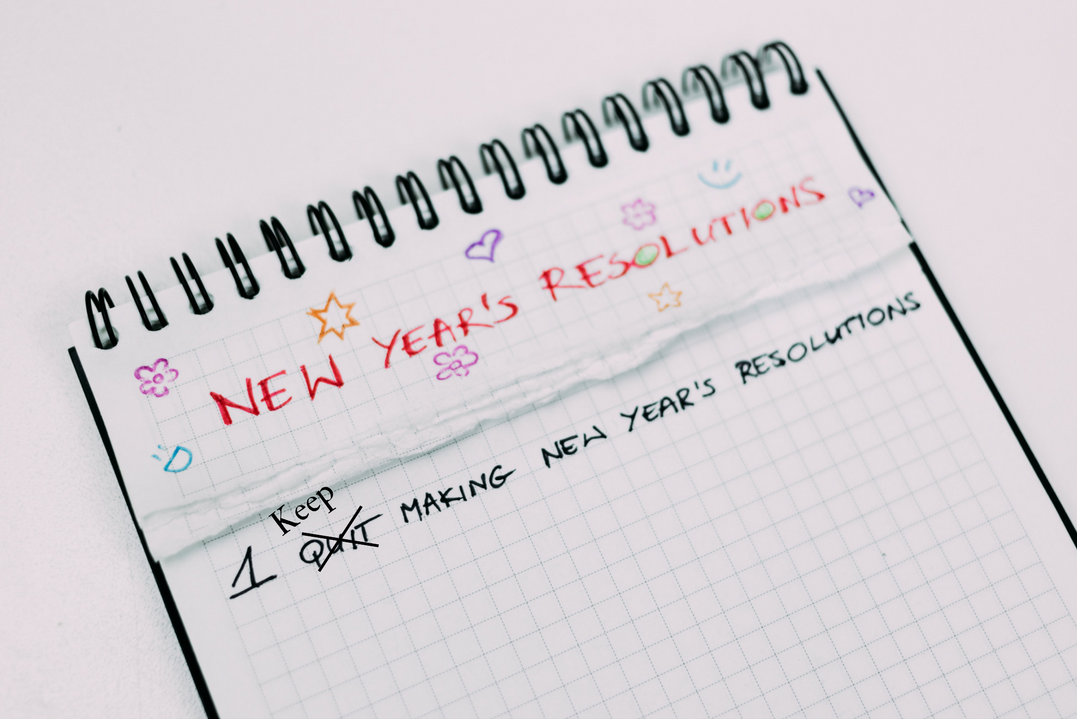 NEW YEAR'S RESOLUTIONS
Keep
1 QUIT MAKING NEW YEAR'S RESOLUTIONS